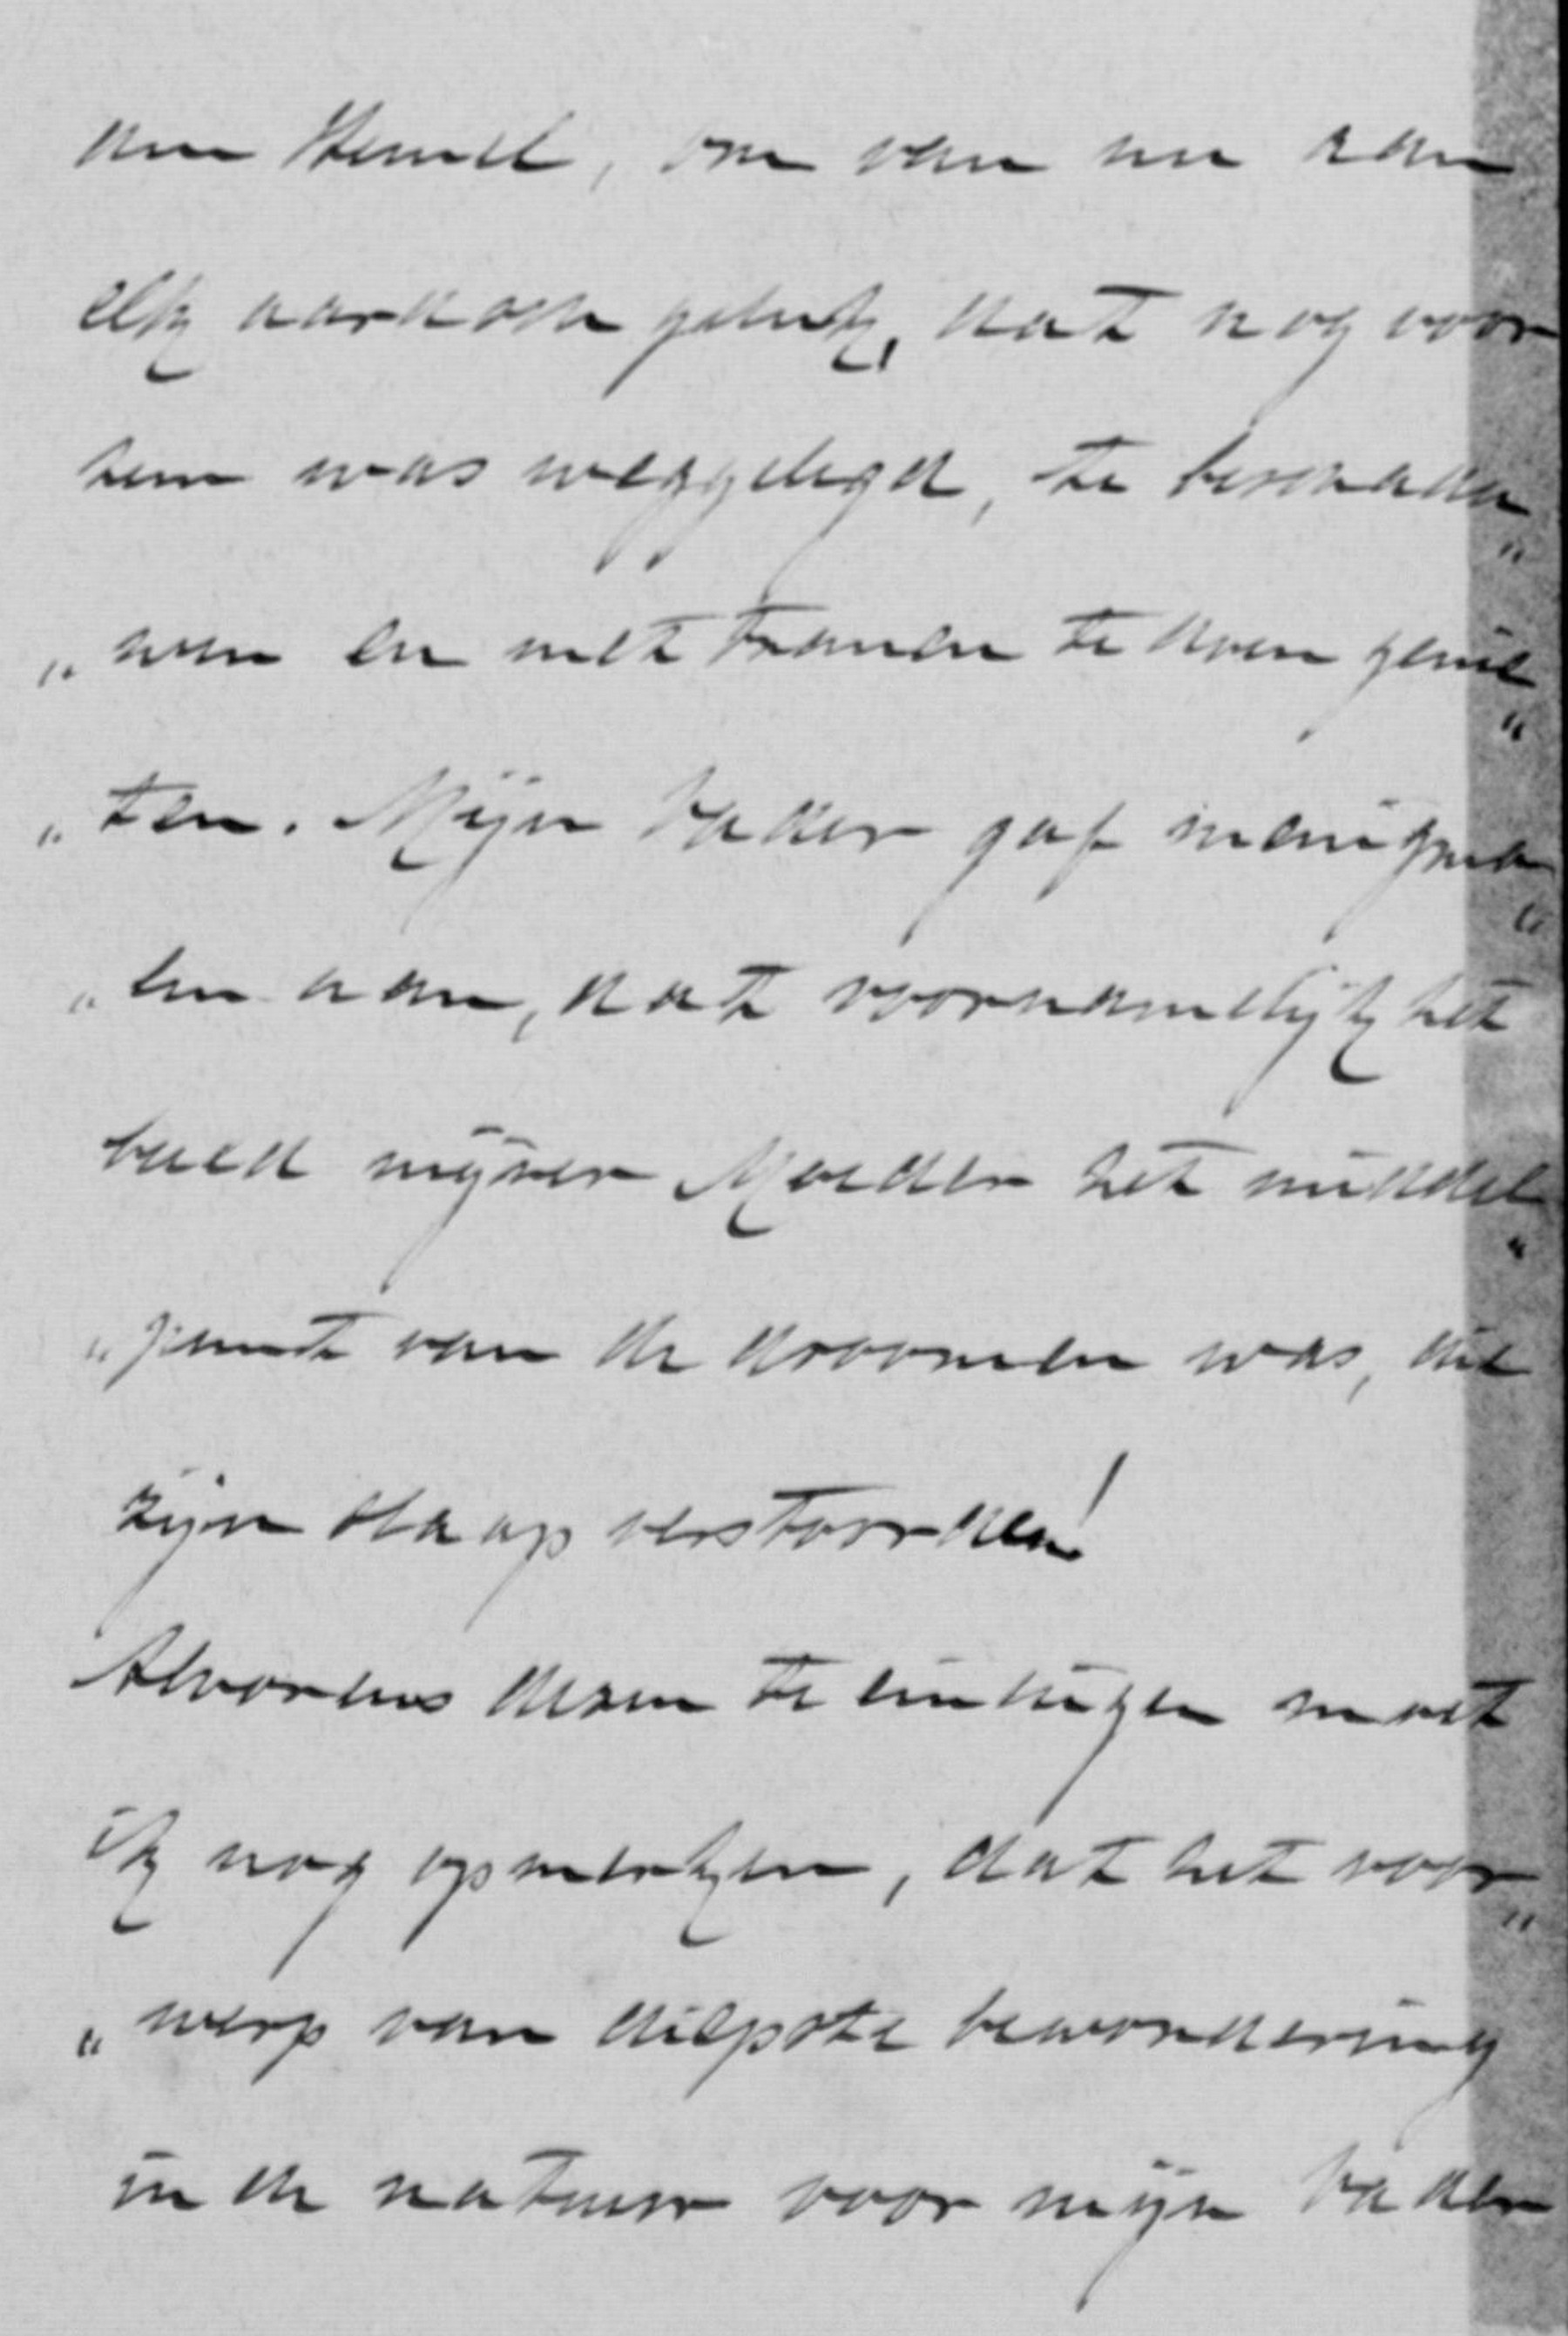 den Hemel, om van nu aan
elk aardsch geluk, dat nog voor
hem was weggelegd, te beschadu„
„wen en met tranen te doen genie„
„ten. Mijn Vader gaf menigma„
„len aan, dat voornamelijk het
beeld mijner Moeder het middel„
„punt van de droomen was, die
zijn slaap verstoorden!
Alvorens dezen te eindigen moet
ik nog opmerken, dat het voor„
„werp van diepste bewondering
in de natuur voor mijn Vader